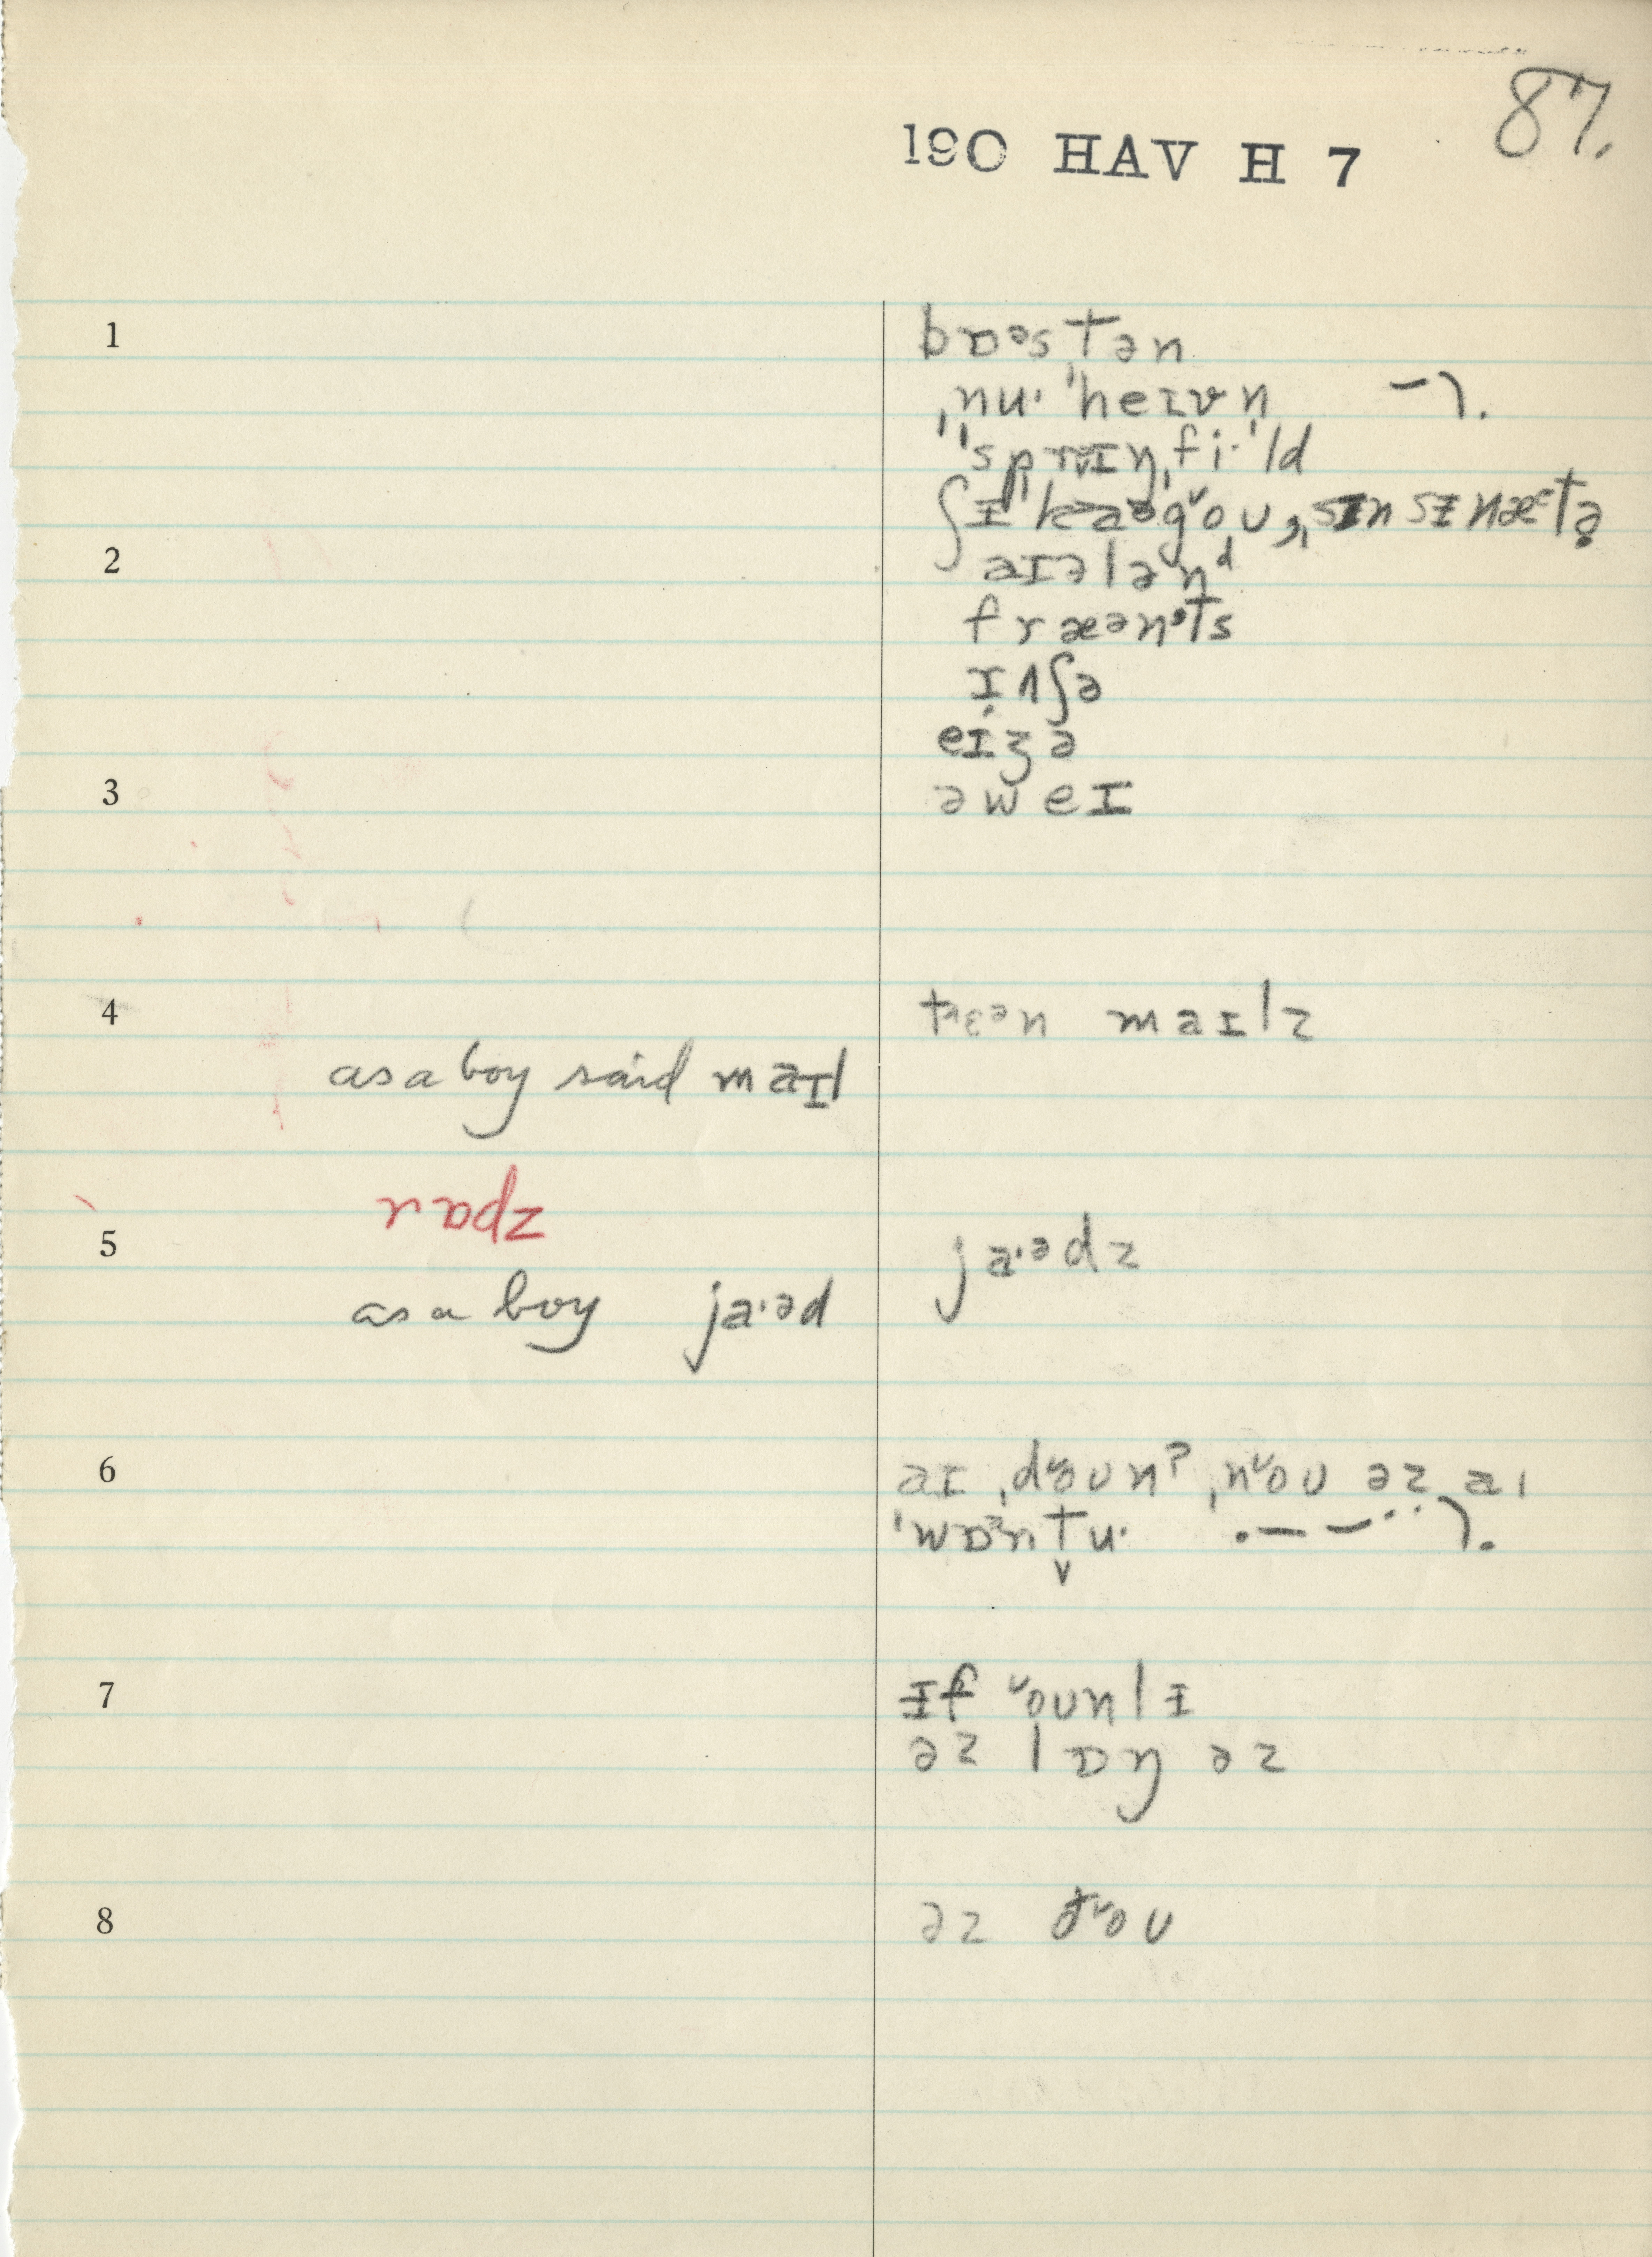 87.
190 HAV H 7
1 bɒᵊstən
ˌnu· ˈheɪvn̩
ˈˈsprɪŋˌfi·ˈld
ʃɪˈkaᵊgˇoʊ, ˌsɪnsɪnæᵋtə
2 aɪələnᵈ
fræənᵗs
ʌʃə
eɪʒə
3 əweɪ
4 tʰɛᵊn maɪlz
as a boy said maɪl
5 ja·ᵊdz
as a boy ja·əd
6 aɪ ˌdˇoʊnˀ ˌnˇoʊ əz aɪ
ˈwɒᵊntu·
7 ɪf ˇoʊnlɪ
əz lɒŋ əz
8 əz ðˇoʊ